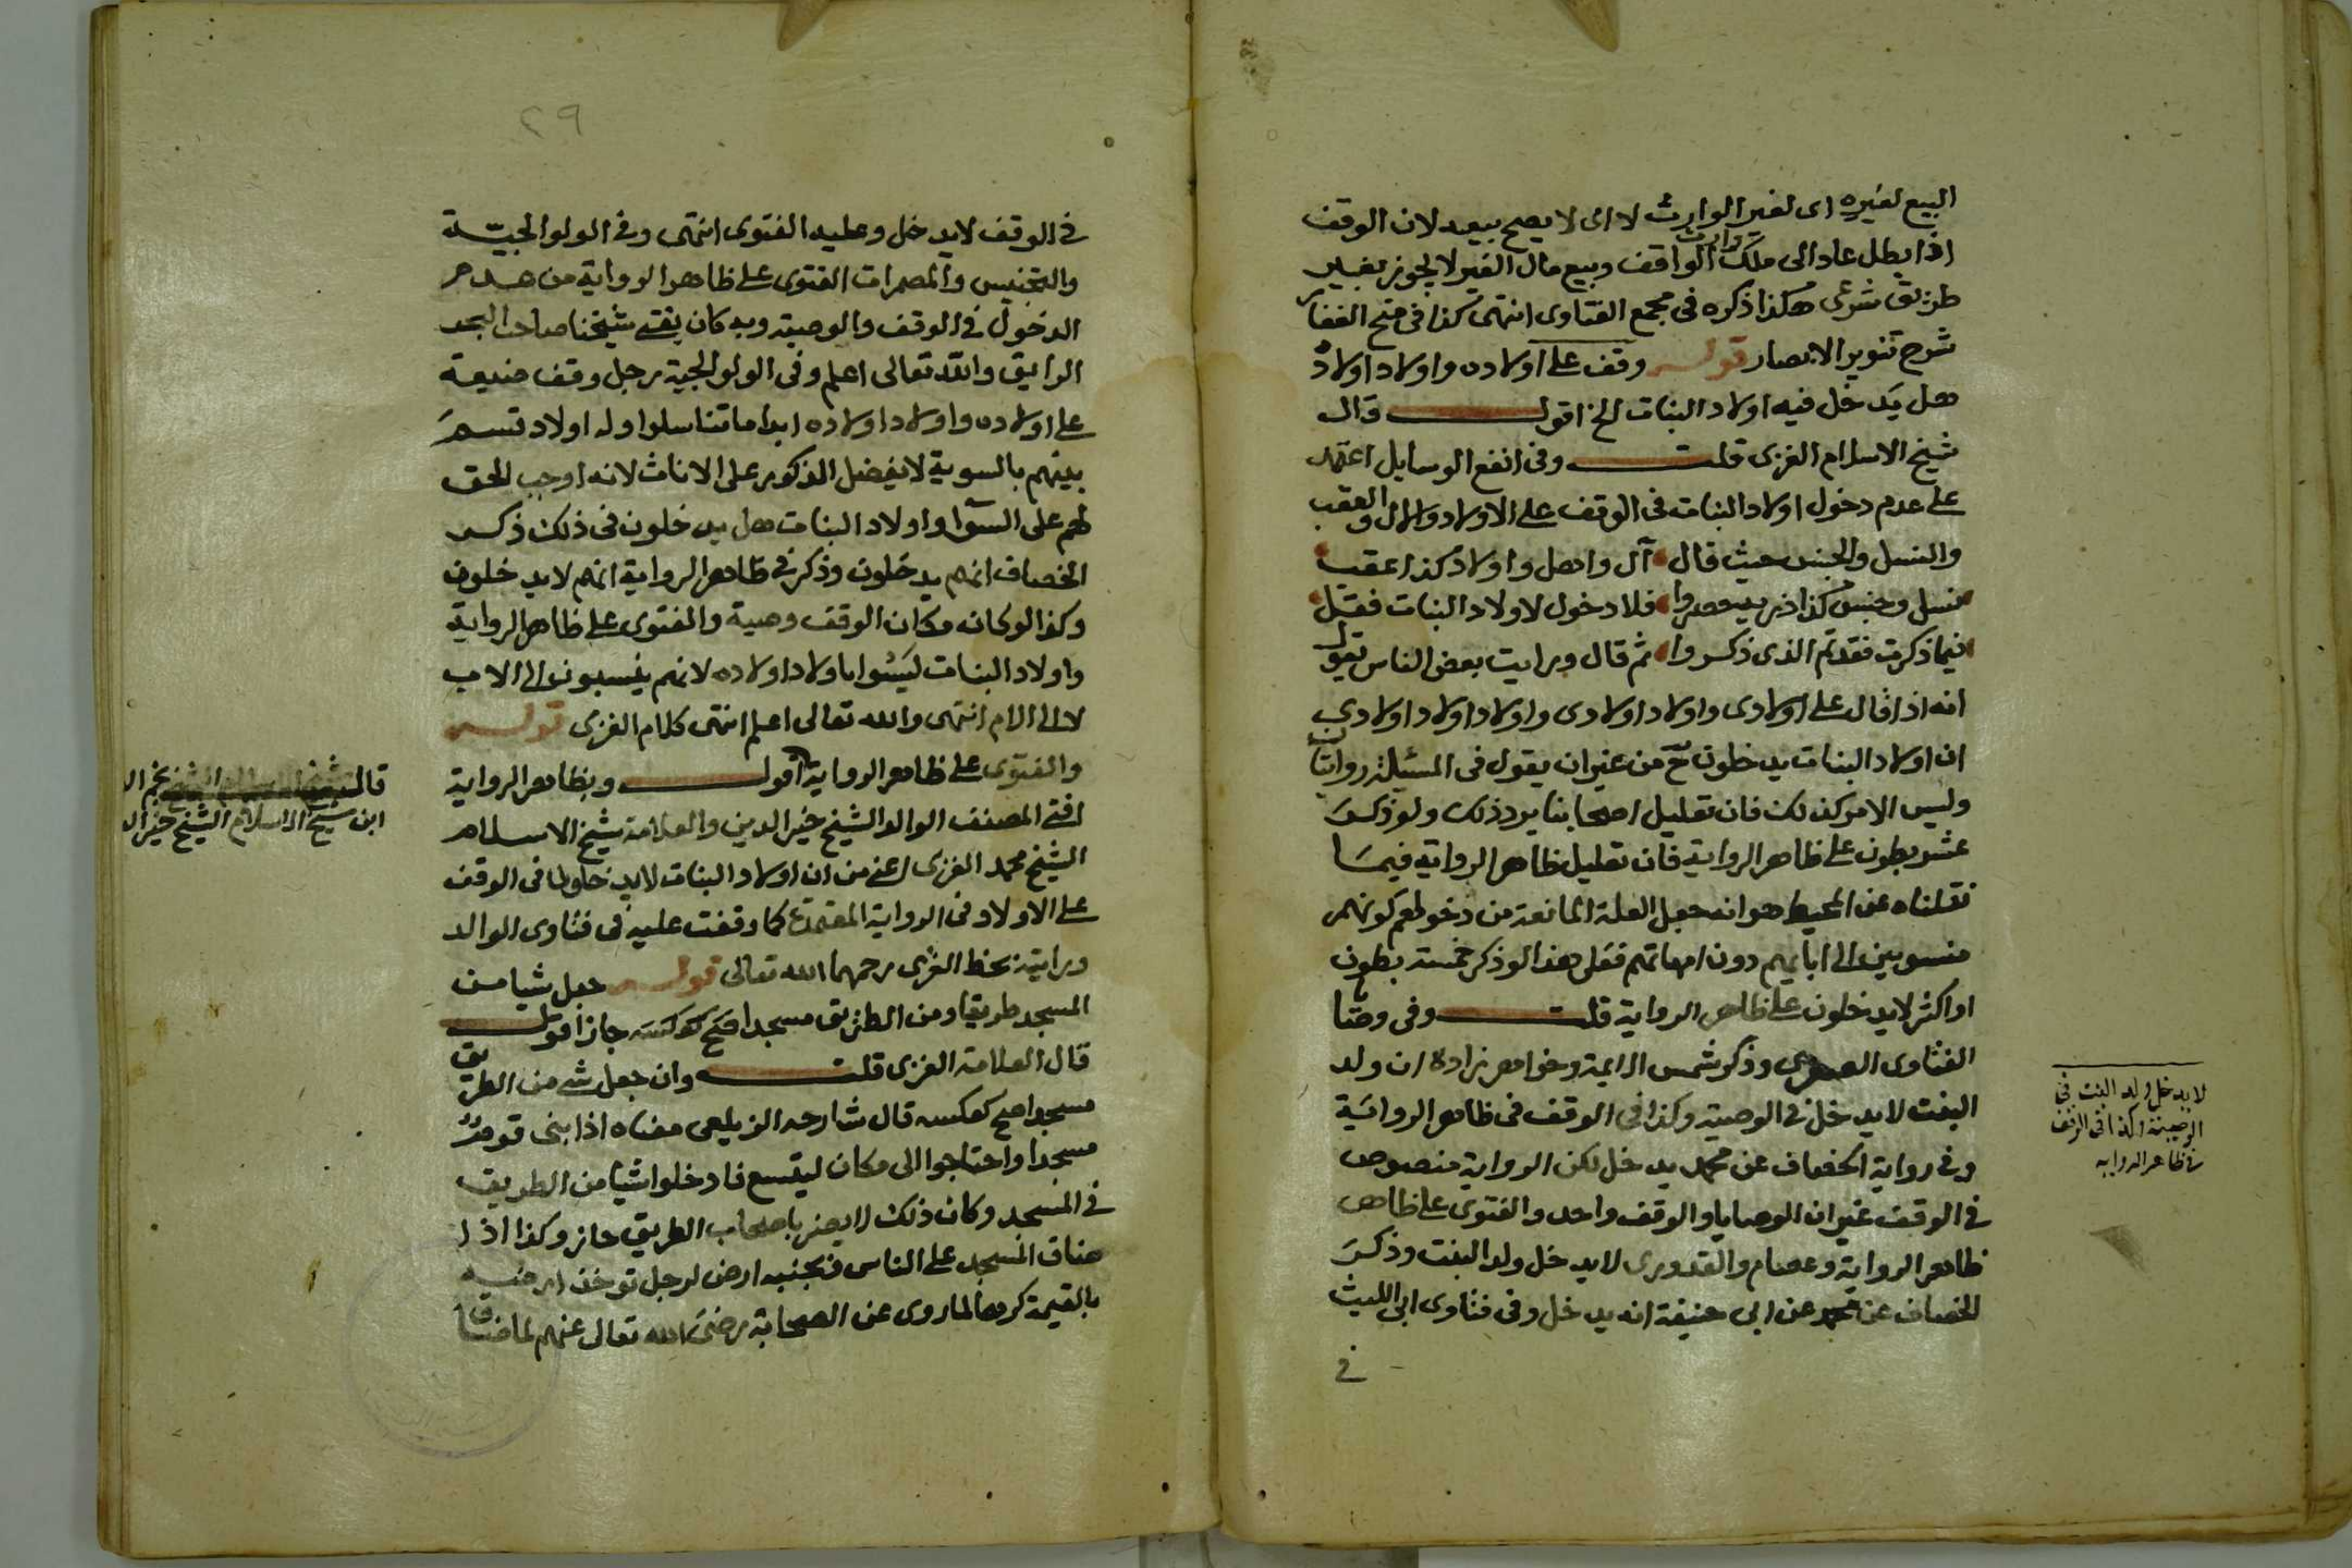 البيع لغيره اى لغير الوارث لا اى لا يصح بيعه لان الوقف
اذا بطل عاد الى ملك وارث الواقف وبيع مال الغير لا يجوز بغير
طريق شرعى هكذا ذكره فى مجمع الفتاوى انتهى كذا فى منح الغفار
شرح تنوير الابصار قوله وقف على اولاده واولاد اولاد
هل يدخل فيه اولاد البنات الخ اقول قال
شيخ الاسلام الغزى قلت وفى انفع الوسايل اعتمد
على عدم دخول اولاد البنات فى الوقف على الاولاد والال والعقب
والنسل والجنس حيث قال آل واهل واولاد كذا عقب
نسل وجنس كذا ذرية حصروا فلا دخول لاولاد البنات فقل
فيما ذكرت فقد تم الذى ذكروا ثم قال ورايت بعض الناس يقول
انه اذا قال على اولادى واولاد اولادى واولاد اولاد اولادى
ان اولاد البنات يدخلون ح من غير ان يقول فى المسئلة روايتان
وليس الامر كذلك فان تعليل اصحابنا يرد ذلك ولو ذكر
عشر بطون على ظاهر الرواية فان تعليل ظاهر الرواية فيما
نقلناه عن المحيط هو انه جعل العلة المانعة من دخولهم كونهم
منسوبين الى ابائهم دون امهاتهم فعلى هذا لو ذكر خمسة بطون
او اكثر لا يدخلون على ظاهر الرواية قلت وفى وصايا
الفتاوى الصغرى وذكر شمس الايمة وخواهر زاده ان ولد
البنت لا يدخل فى الوصية وكذا فى الوقف فى ظاهر الرواية
وفى رواية الخصاف عن محمد يدخل لكن الرواية منصوص
فى الوقف غير ان الوصايا والوقف واحد والفتوى على ظاهر
ظاهر الرواية وعصام والقدورى لا يدخل ولد البنت وذكر
الخصاف عن محمد عن ابى حنيفة انه يدخل وفى فتاوى ابى الليث
فى
لا يدخل ولد البنت فى
الوصية وكذا فى الوقف
فى ظاهر الروايه
٢٩
فى الوقف لا يدخل وعليه الفتوى انتهى وفى الولوالجية
والتجنيس والمضمرات الفتوى على ظاهر الرواية من عدم
الدخول فى الوقف والوصية وبه كان يفتى شيخنا صاحب البحر
الرايق والله تعالى اعلم وفى الولوالجية رجل وقف ضيعة
على اولاده واولاد اولاده ابدا ما تناسلوا وله اولاد قسم
بينهم بالسوية لا يفضل الذكور على الاناث لانه اوجب الحق
لهم على السوآ واولاد البنات هل يدخلون فى ذلك ذكر
الخصاف انهم يدخلون وذكر فى ظاهر الرواية انهم لا يدخلون
وكذا لو كانه مكان الوقف وصية والفتوى على ظاهر الرواية
واولاد البنات ليسوا باولاد اولاده لانهم ينسبون الى الاب
لا الى الام انتهى والله تعالى اعلم انتهى كلام الغزى قوله
والفتوى على ظاهر الرواية اقول وبظاهر الرواية
افتى المصنف الوالد الشيخ خير الدين والعلامة شيخ الاسلام
الشيخ محمد الغزى اعنى من ان اولاد البنات لا يدخلون فى الوقف
على الاولاد فى الرواية المعتمدة كما وقفت عليه فى فتاوى الوالد
ورايته بخط الغزى رحمهما الله تعالى قوله جعل شيا من
المسجد طريقا ومن الطريق مسجدا صح كعكسه جاز اقول
قال العلامة الغزى قلت وان جعل شى من الطريق
مسجدا صح كعكسه قال شارحه الزيلعى معناه اذا بنى قوم
مسجدا واحتاجوا الى مكان ليتسع فادخلوا شيا من الطريق
فى المسجد وكان ذلك لا يضر باصحاب الطريق جاز وكذا اذا
ضاق المسجد على الناس وبجنبه ارض لرجل توخذ ارضه
بالقيمة كرها لما روى عن الصحابة رضى الله تعالى عنهم لما ضاق
قال
ابن شيخ الاسلام الشيخ خير الد